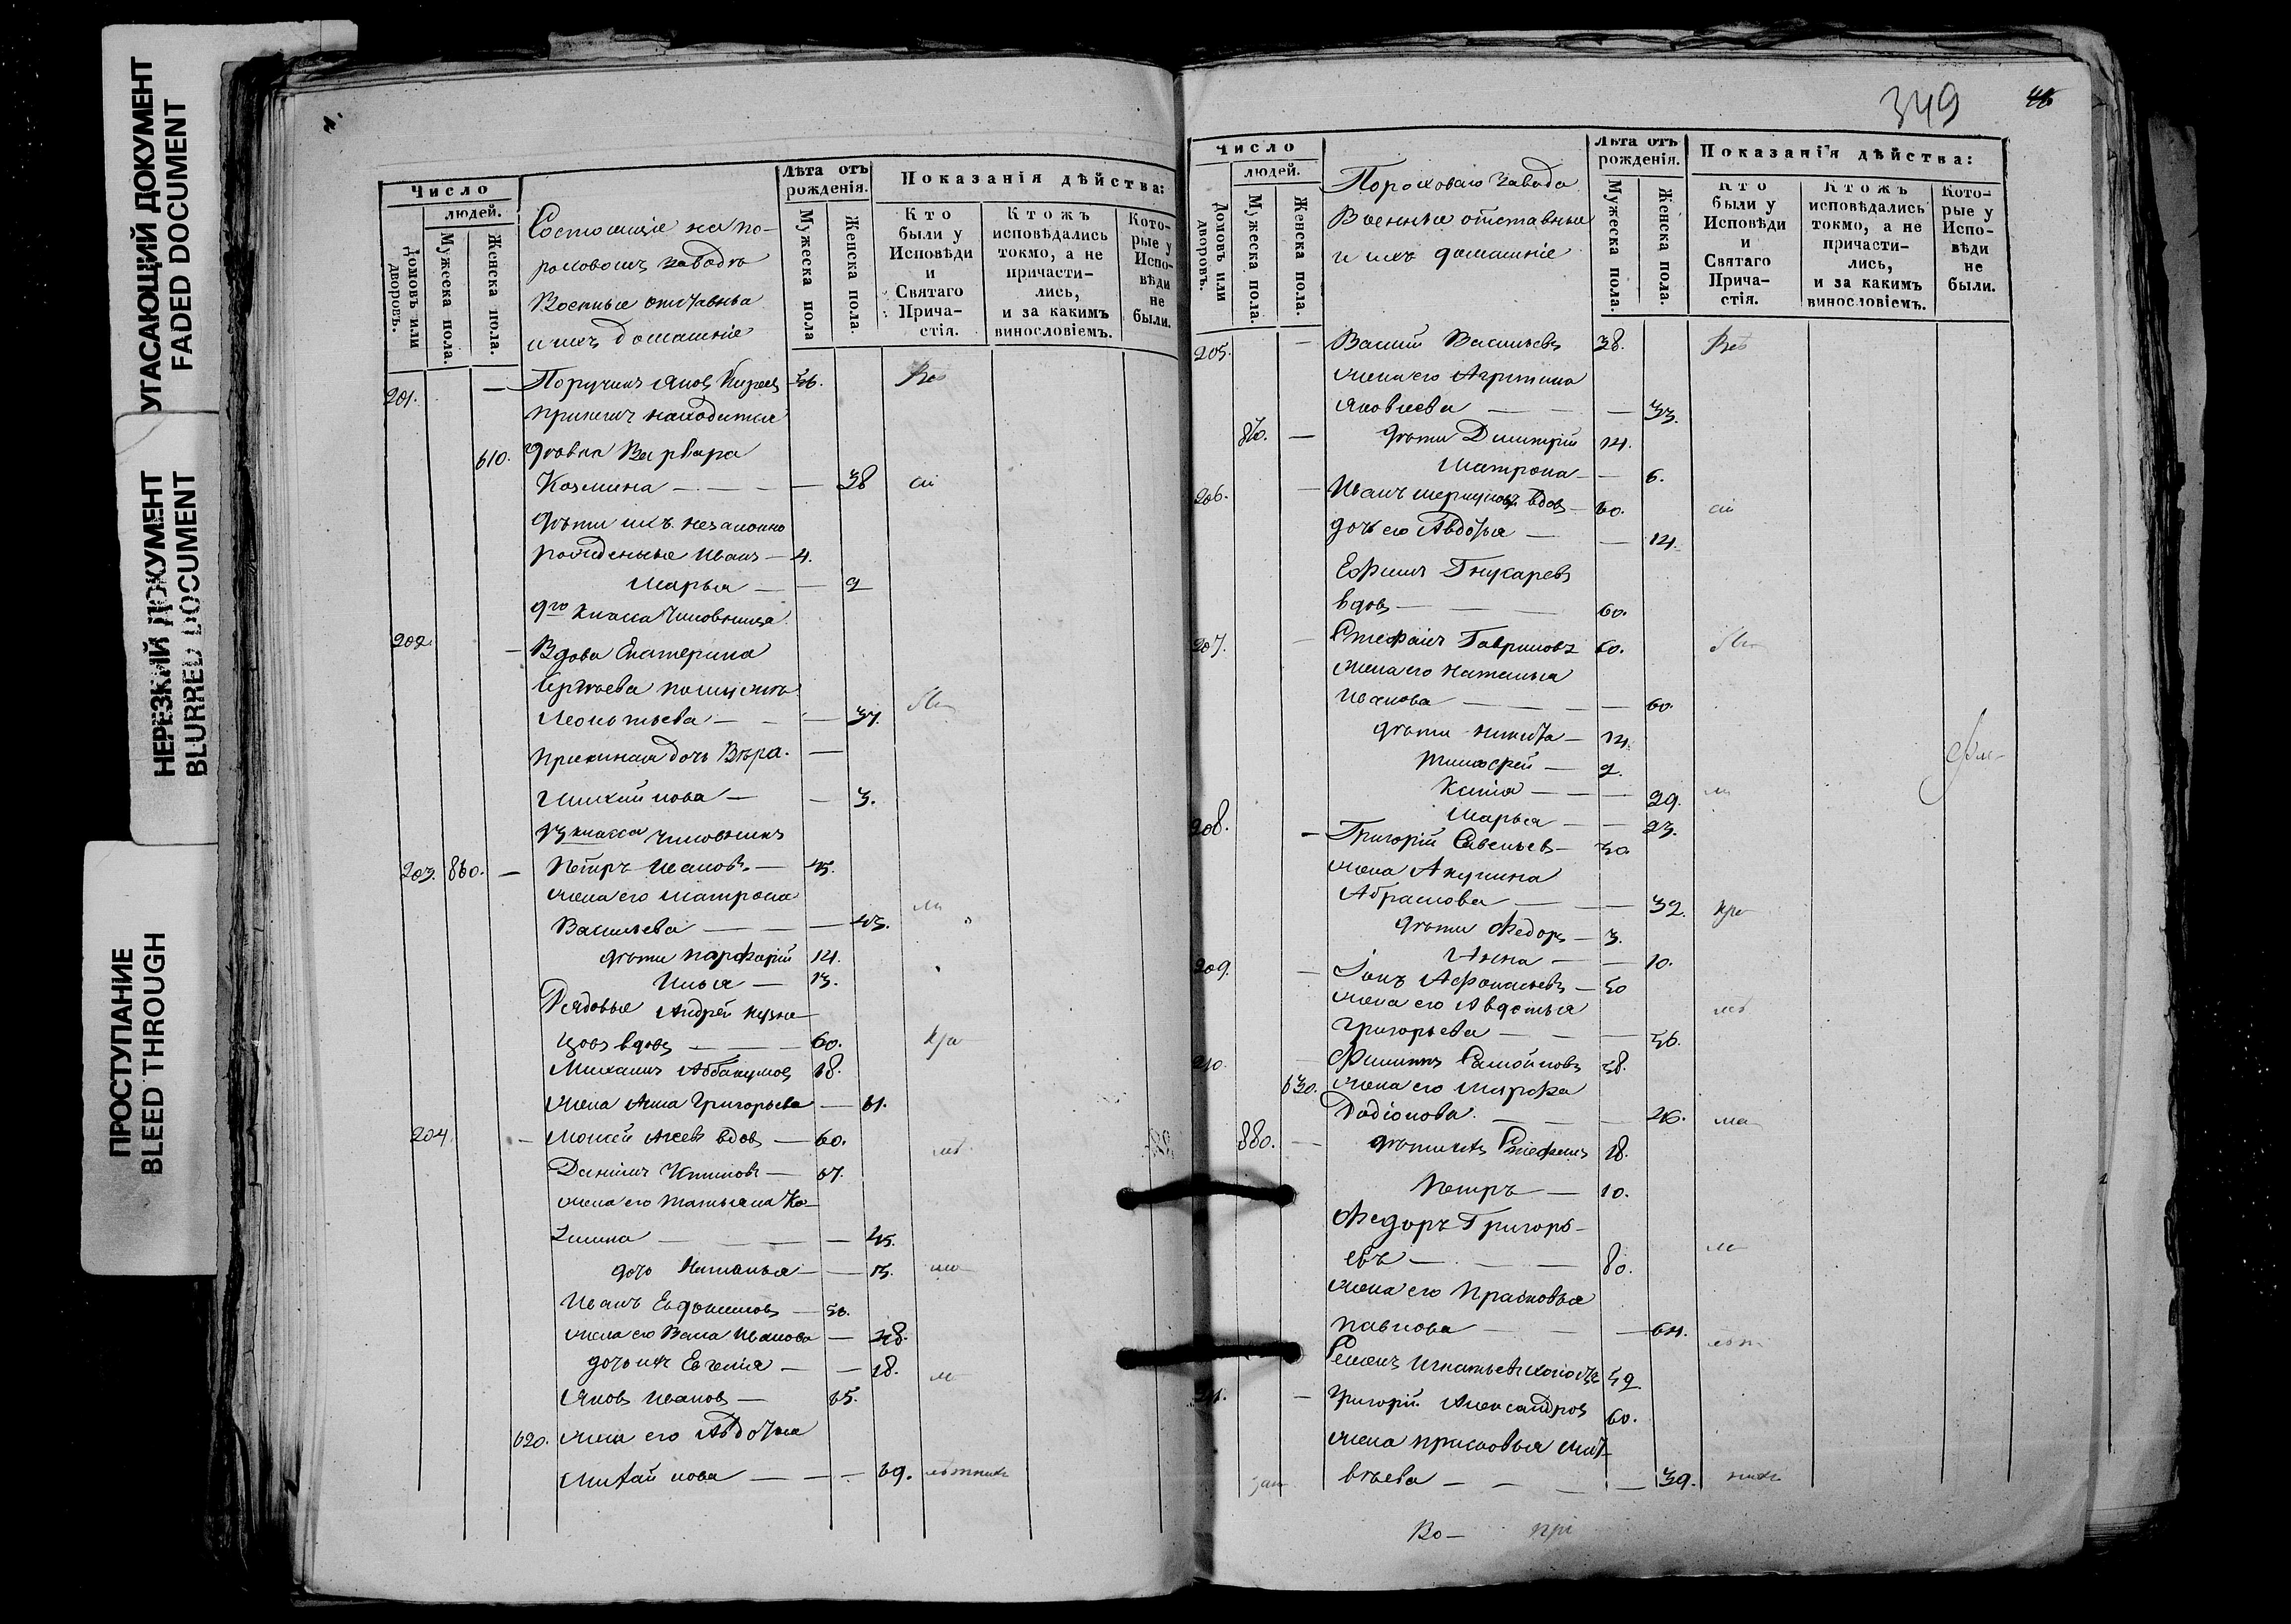 УГАСАЮЩИЙ ДОКУМЕНТ
FADED DOCUMENT
НЕРЕЗКИЙ ДОКУМЕНТ
BLURRED DOCUMENT
ПРОСТУПАНИЕ
BLEED THROUGH
Число
людей.
Домовъ или дворовъ.
Мужеска пола.
Женска пола.
Состоящіе на по-
роховомъ заводѣ
Военные отставныя
и ихъ домашніе
Лѣта отъ рожденія.
Мужеска пола
Женска пола.
Показанія дѣйства:
Кто были у Исповѣди и Святаго Прича-стія.
Ктожъ исповѣдались токмо, а не причасти-лись, и за какимъ винословіемъ.
Кото-рые у Испо-вѣди не были.
201. — Поручикъ Яковъ 56. Всѣ
при немъ находится
610. дѣвка Варвара
Козмина — — — 38 сіи
дѣти ихъ незаконно
рожденные Иванъ — 4.
Марья — — 2
9го класса Чиновница
202. — Вдова Екатерина
Сергѣева
Леонтьева — — 37.
дочь Вѣра. —
Михайлова — — 3.
класса чиновникъ
203. 860. — Петръ Ивановъ — 45.
жена его Матрона
Васильева — — — 43.
дѣти Парфирій 14.
Илья — 13.
Рядовые Андрей Кузне-
цовъ вдовъ — — 60.
Михаилъ Аббакумовъ 68.
жена Анна Григорьева — 61.
204. — Моисей вдовъ — 60.
Даніилъ — 67.
жена его Татьяна Ко-
змина — — — 45.
дочь Наталья — — 15.
Иванъ Евдокимовъ — 56.
жена его Иванова — 48.
дочь ихъ Евгенія — — 18.
Яковъ Ивановъ — 65.
620. жена его Авдотья
Михайлова — — — 69.
349
46
Число
людей.
Домовъ или дворовъ.
Мужеска пола.
Женска пола.
Пороховаго Завода
Военные отставные
и ихъ домашніе
Лѣта отъ рожденія.
Мужеска пола.
Женска пола.
Показанія дѣйства:
Кто были у Исповѣди и Святаго Прича-стія.
Ктожъ исповѣдались токмо, а не причасти-лись, и за какимъ винословіемъ.
Кото-рые у Испо-вѣди не были.
205. — Василій Васильевъ 38. Всѣ
жена его Агрипина
Яковлева — — — 33.
870. — дѣти Димитрій 14.
Матрона — — 6.
206. — Иванъ вдовъ — 60. сіи
дочь его Авдотья — — 14.
Ефимъ
вдовъ — — — 60.
207. — Стефанъ Гавриловъ 60.
жена его Наталья
Иванова — — — 60.
дѣти Никита — 14.
Тимофей — 9.
Ксенія — — — 29.
Марья — — 23.
208. — Григорій Савельевъ — 30.
жена Акулина
Абрамова — — — 32.
дѣти Федоръ — 3.
Анна — — 10.
209. — Іонъ Афонасьевъ — 50
жена его Авдотья
Григорьева — — — 56.
210. — Филиппъ Самойловъ 58.
630. жена его Марфа
Радіонова — — — 46.
880. — дѣти ихъ Стефанъ 18.
Петръ — 10.
Федоръ Григорь-
евъ — — — 80.
жена его Прасковья
Павлова — — — 64.
Семенъ Игнатьевъ холостъ 52.
211. — Григорій Александровъ 60.
жена Прасковья Мат-
вѣева — — — 39.
Во-